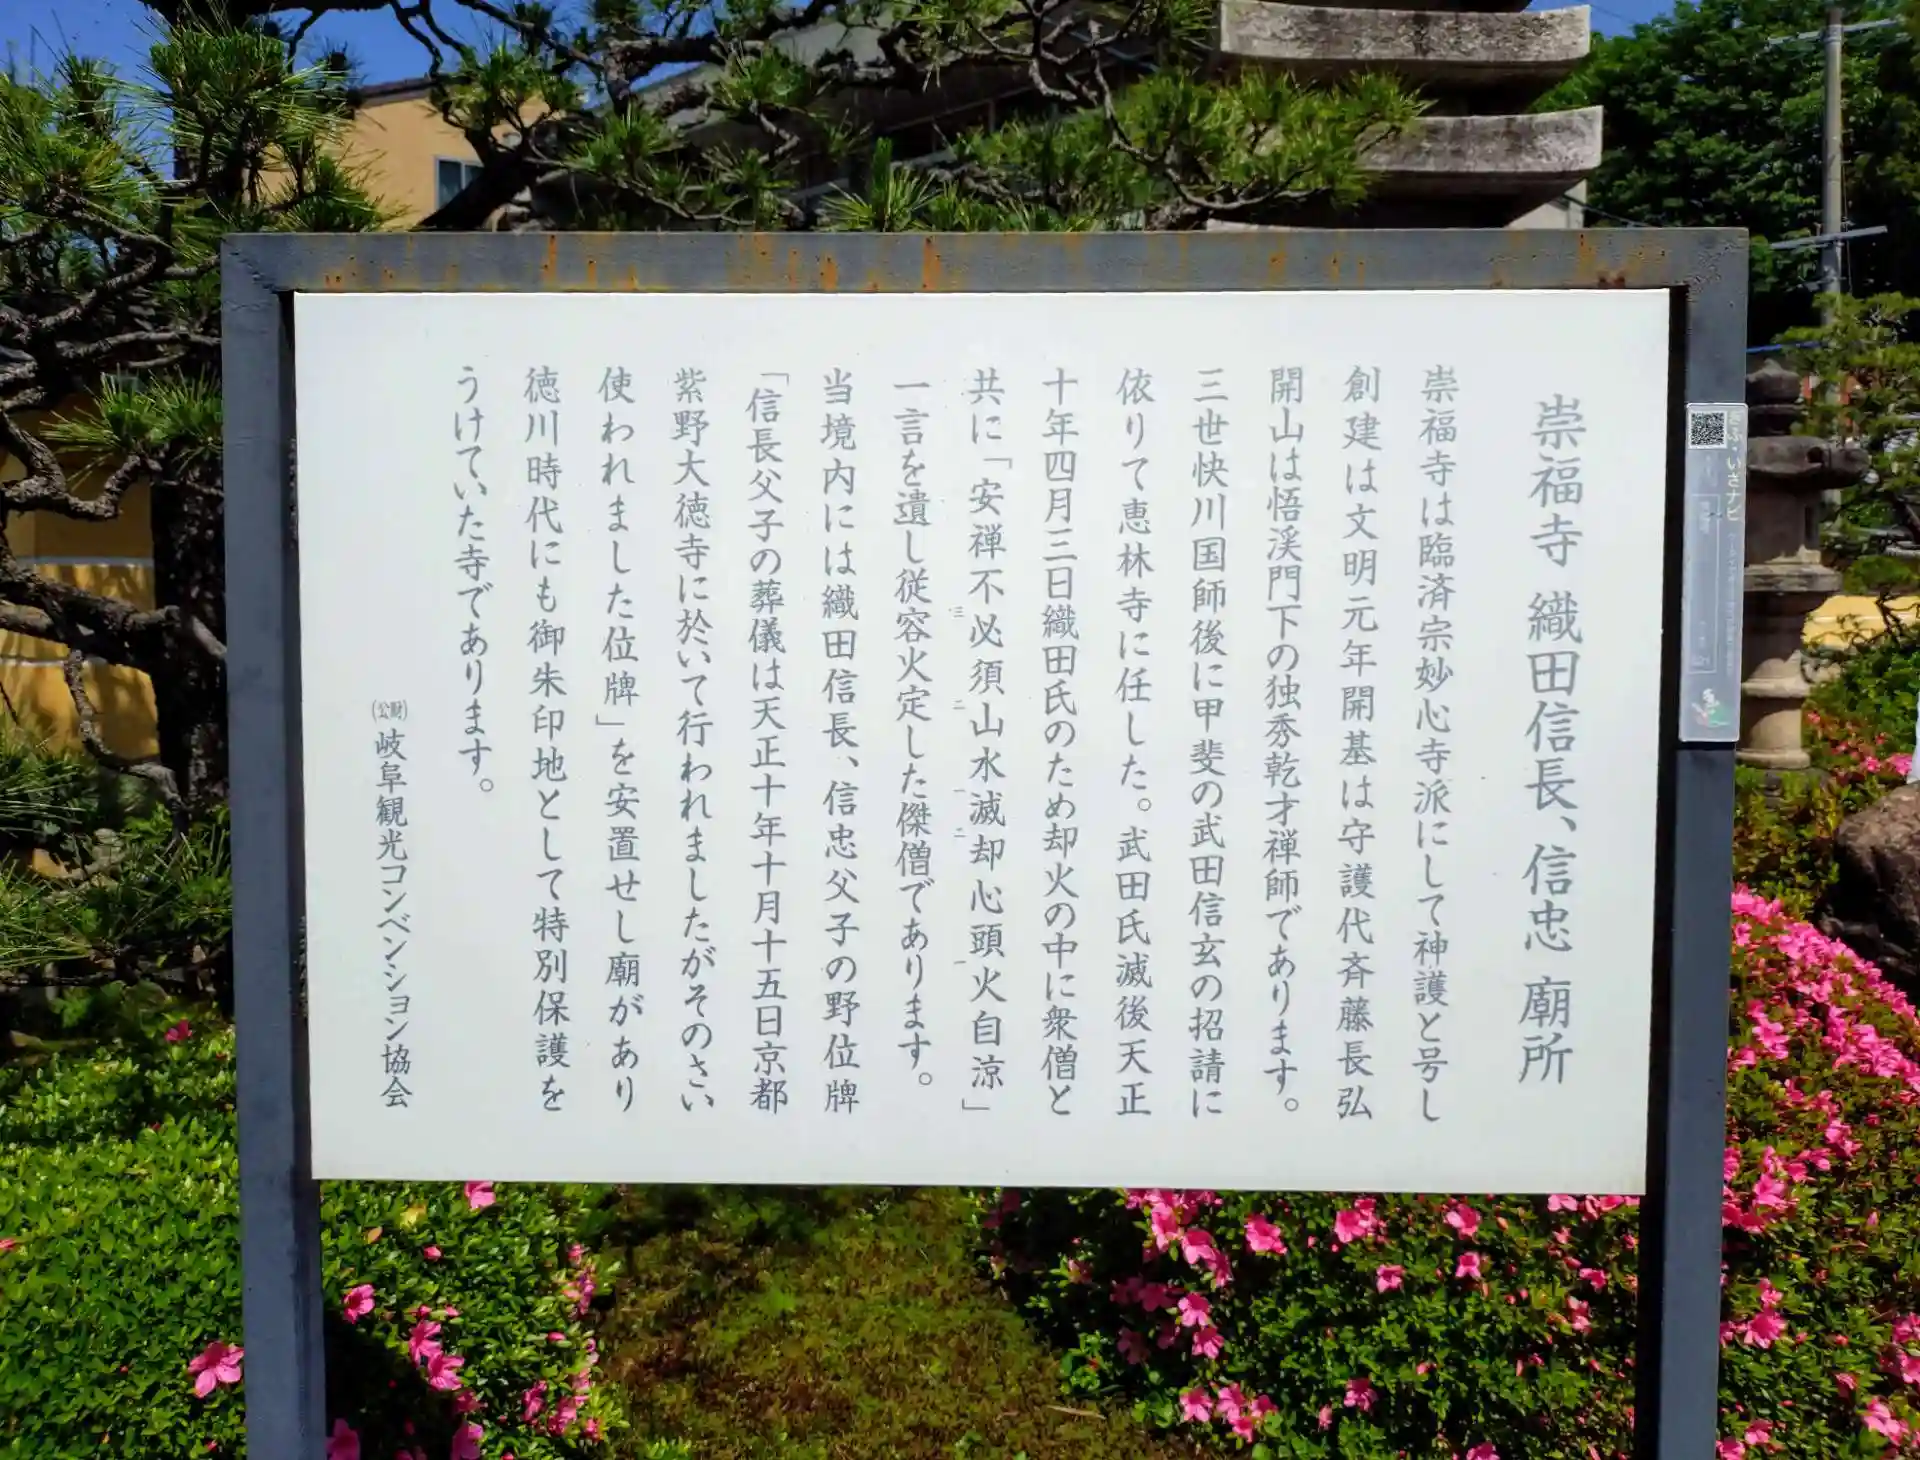 崇福寺 織田信長、信忠 廟所
崇福寺は臨済宗妙心寺派にして神護と号し
創建は文明元年開基は守護代斉藤長弘
開山は悟渓門下の独秀乾才禅師であります。
三世快川国師後に甲斐の武田信玄の招請に
依りて恵林寺に任した。武田氏滅後天正
十年四月三日織田氏のため却火の中に衆僧と
共に「安禅不必須山水滅却心頭火自涼」
一言を遺し従容火定した傑僧であります。
当境内には織田信長、信忠父子の野位牌
「信長父子の葬儀は天正十年十月十五日京都
紫野大徳寺に於いて行われましたがそのさい
使われました位牌」を安置せし廟があり
徳川時代にも御朱印地として特別保護を
うけていた寺であります。
(公財)岐阜観光コンベンション協会
ぎふ・いざナビ